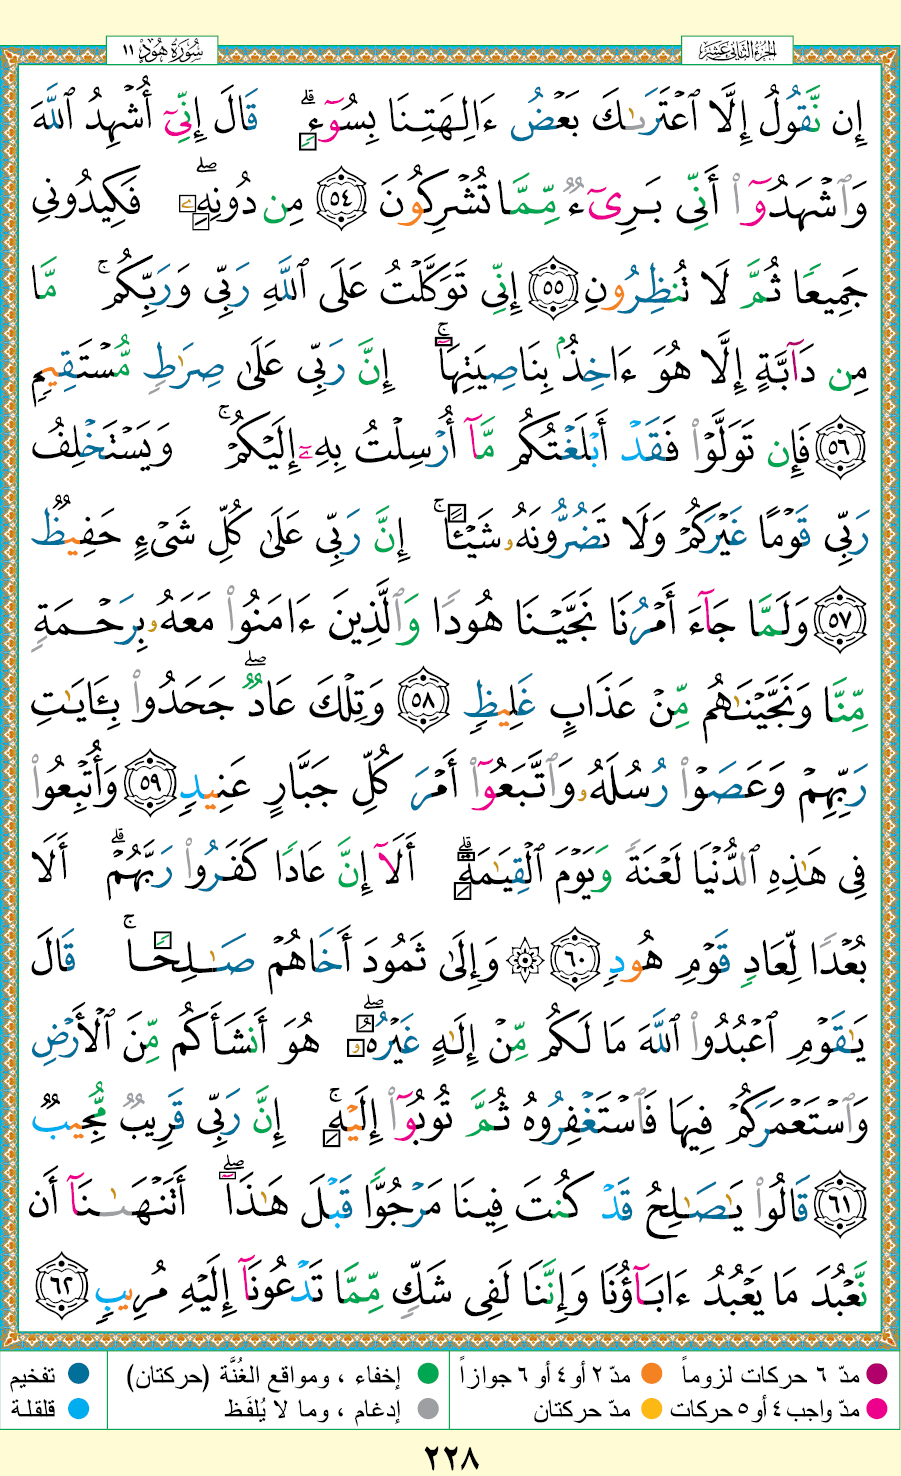 سُورَةُ هُودٍ ١١
الجُزْءُ الثَّانِي عَشَرَ
إِن نَّقُولُ إِلَّا ٱعْتَرَىٰكَ بَعْضُ ءَالِهَتِنَا بِسُوٓءٍۗ قَالَ إِنِّىٓ أُشْهِدُ ٱللَّهَ
وَٱشْهَدُوٓا۟ أَنِّى بَرِىٓءٌ مِّمَّا تُشْرِكُونَ ٥٤ مِن دُونِهِۦۖ فَكِيدُونِى
جَمِيعًا ثُمَّ لَا تُنظِرُونِ ٥٥ إِنِّى تَوَكَّلْتُ عَلَى ٱللَّهِ رَبِّى وَرَبِّكُمۚ مَّا
مِن دَآبَّةٍ إِلَّا هُوَ ءَاخِذٌۢ بِنَاصِيَتِهَآۚ إِنَّ رَبِّى عَلَىٰ صِرَٰطٍ مُّسْتَقِيمٍ
٥٦ فَإِن تَوَلَّوْا۟ فَقَدْ أَبْلَغْتُكُم مَّآ أُرْسِلْتُ بِهِۦٓ إِلَيْكُمْۚ وَيَسْتَخْلِفُ
رَبِّى قَوْمًا غَيْرَكُمْ وَلَا تَضُرُّونَهُۥ شَيْـًٔاۚ إِنَّ رَبِّى عَلَىٰ كُلِّ شَىْءٍ حَفِيظٌ
٥٧ وَلَمَّا جَآءَ أَمْرُنَا نَجَّيْنَا هُودًا وَٱلَّذِينَ ءَامَنُوا۟ مَعَهُۥ بِرَحْمَةٍ
مِّنَّا وَنَجَّيْنَٰهُم مِّنْ عَذَابٍ غَلِيظٍ ٥٨ وَتِلْكَ عَادٌۖ جَحَدُوا۟ بِـَٔايَٰتِ
رَبِّهِمْ وَعَصَوْا۟ رُسُلَهُۥ وَٱتَّبَعُوٓا۟ أَمْرَ كُلِّ جَبَّارٍ عَنِيدٍ ٥٩ وَأُتْبِعُوا۟
فِى هَٰذِهِ ٱلدُّنْيَا لَعْنَةً وَيَوْمَ ٱلْقِيَٰمَةِۗ أَلَآ إِنَّ عَادًا كَفَرُوا۟ رَبَّهُمْۗ أَلَا
بُعْدًا لِّعَادٍ قَوْمِ هُودٍ ٦٠ ۞ وَإِلَىٰ ثَمُودَ أَخَاهُمْ صَٰلِحًاۚ قَالَ
يَٰقَوْمِ ٱعْبُدُوا۟ ٱللَّهَ مَا لَكُم مِّنْ إِلَٰهٍ غَيْرُهُۥۖ هُوَ أَنشَأَكُم مِّنَ ٱلْأَرْضِ
وَٱسْتَعْمَرَكُمْ فِيهَا فَٱسْتَغْفِرُوهُ ثُمَّ تُوبُوٓا۟ إِلَيْهِۚ إِنَّ رَبِّى قَرِيبٌ مُّجِيبٌ
٦١ قَالُوا۟ يَٰصَٰلِحُ قَدْ كُنتَ فِينَا مَرْجُوًّا قَبْلَ هَٰذَآۖ أَتَنْهَىٰنَآ أَن
نَّعْبُدَ مَا يَعْبُدُ ءَابَآؤُنَا وَإِنَّنَا لَفِى شَكٍّ مِّمَّا تَدْعُونَآ إِلَيْهِ مُرِيبٍ ٦٢
مدّ ٦ حركات لزوماً مدّ ٢ أو ٤ أو ٦ جوازاً إخفاء ، ومواقع الغُنَّة (حركتان) تفخيم
مدّ واجب ٤ أو ٥ حركات مدّ حركتان إدغام ، وما لا يُلفَظ قلقلة
٢٢٨